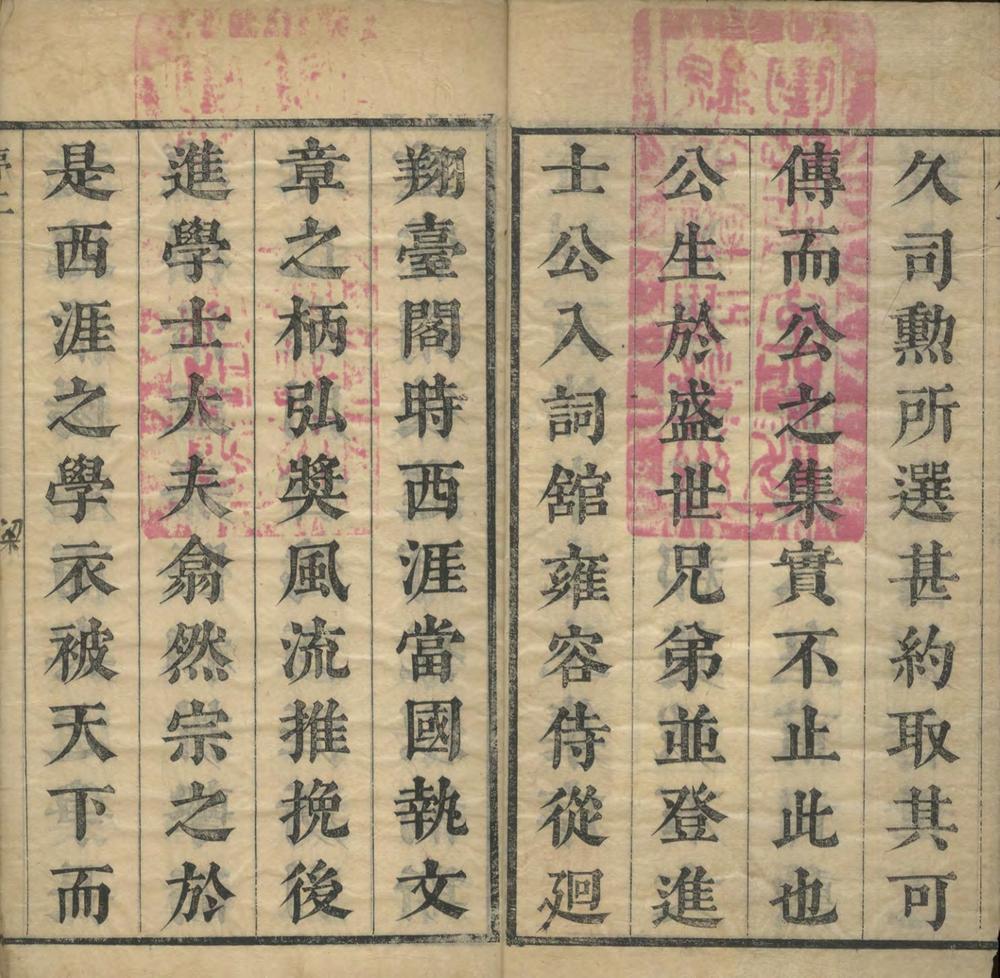 久司勲所選甚約取其可
傳而公之集實不止此也
公生於盛世兄弟並登進
士公入詞舘雍容侍從廻
翔臺閣時西涯當國執文
章之柄弘奬風流推挽後
進學士大夫翕然宗之於
是西涯之學衣被天下而
梁